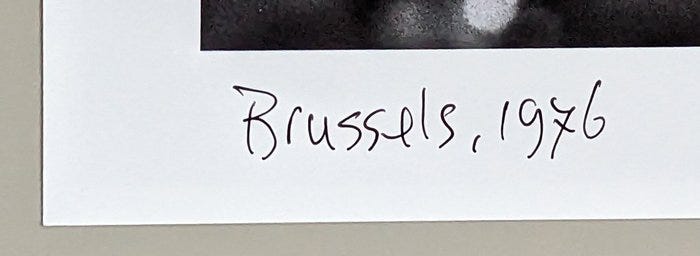 Brussels, 1976